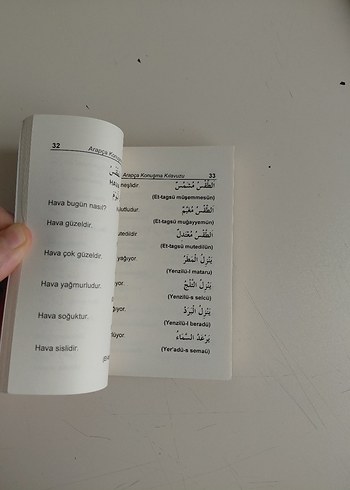 32
Arapça Konuş
Hava bugün nasıl?
Hava güzeldir.
Hava çok güzeldir.
Hava yağmurludur.
Hava soğuktur.
Hava sislidir.
Arapça Konuşma Kılavuzu 33
neşlidir. اَلطَّقْسُ مُشَمِّسٌ
(Et-tagsü müşemmesün)
ulutludur. اَلطَّقْسُ مُغَيِّمٌ
(Et-tagsü muğayyemün)
utedildir اَلطَّقْسُ مُعْتَدِلٌ
(Et-tagsü mutedilün)
yağıyor. يَنْزِلُ الْمَطَرُ
(Yenzilü-l mataru)
ıyor. يَنْزِلُ الثَّلْجُ
(Yenzilü-s selcü)
yor. يَنْزِلُ الْبَرَدُ
(Yenzilü-l beradü)
lüyor يَرْعَدُ السَّمَاءُ
(Yer'adü-s semaü)